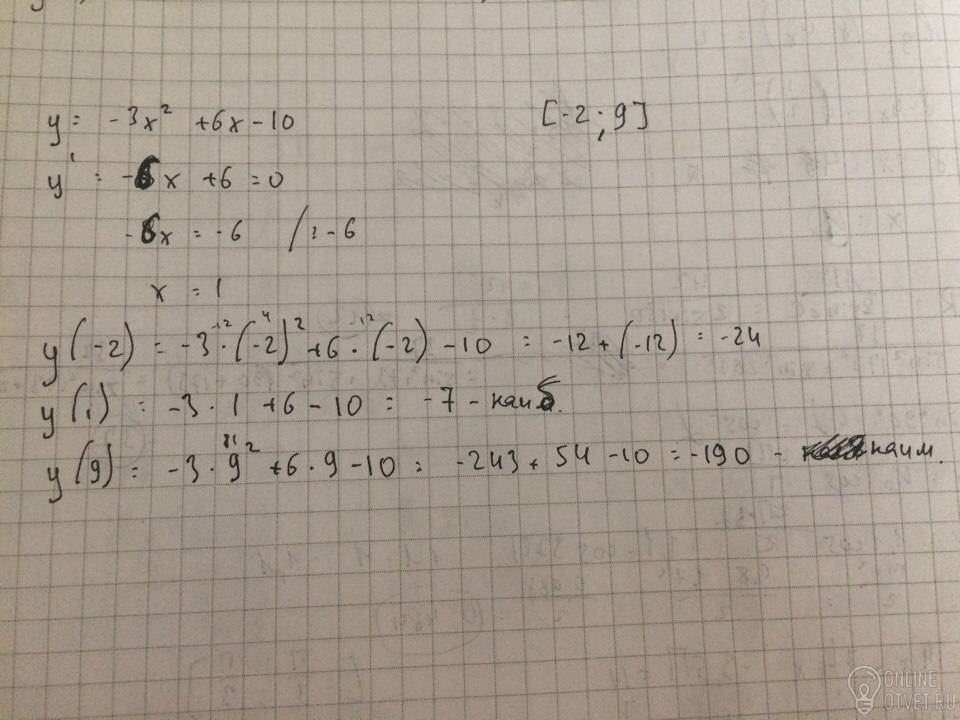 y = -3x² + 6x - 10 [-2; 9]
y' = -6x + 6 = 0
-6x = -6 /: -6
x = 1
-12 4 -12
y(-2) = -3·(-2)² + 6·(-2) - 10 = -12 + (-12) = -24
y(1) = -3·1 + 6 - 10 = -7 - наиб.
81
y(9) = -3·9² + 6·9 - 10 = -243 + 54 - 10 = -190 - наим.
ONLINE
OTVET.RU